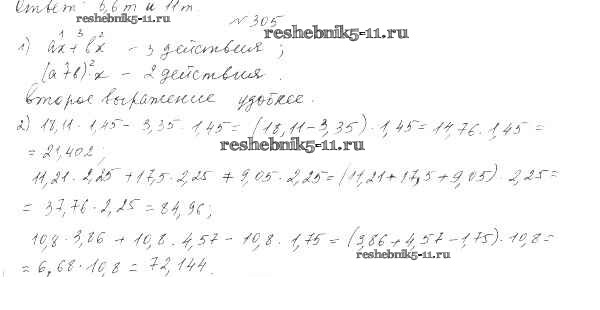 Ответ: 3,6 т и 11 т.
reshebnik5-11.ru
№ 305
reshebnik5-11.ru
1) ax + bx – 3 действия ;
(a+b)·x – 2 действия .
второе выражение удобнее.
2) 18,11 · 1,45 – 3,35 · 1,45 = (18,11 – 3,35) · 1,45 = 14,76 · 1,45 =
= 21,402 ;
reshebnik5-11.ru
11,21 · 2,25 + 17,5 · 2,25 + 9,05 · 2,25 = (11,21 + 17,5 + 9,05) · 2,25 =
= 37,76 · 2,25 = 84,96 ;
10,8 · 3,86 + 10,8 · 4,57 – 10,8 · 1,75 = (3,86 + 4,57 – 1,75) · 10,8 =
reshebnik5-11.ru
= 6,68 · 10,8 = 72,144 .